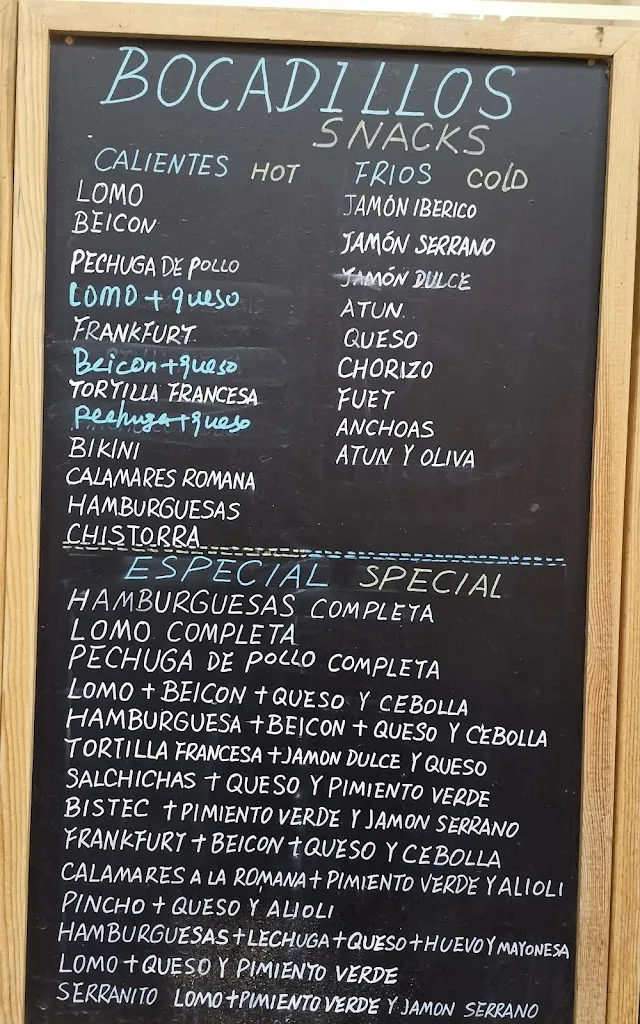 BOCADILLOS
SNACKS
CALIENTES HOT
LOMO
BEICON
PECHUGA DE POLLO
LOMO + queso
FRANKFURT
Beicon + queso
TORTILLA FRANCESA
Pechuga + queso
BIKINI
CALAMARES ROMANA
HAMBURGUESAS
CHISTORRA
FRIOS COLD
JAMÓN IBERICO
JAMÓN SERRANO
JAMÓN DULCE
ATUN
QUESO
CHORIZO
FUET
ANCHOAS
ATUN Y OLIVA
ESPECIAL SPECIAL
HAMBURGUESAS COMPLETA
LOMO COMPLETA
PECHUGA DE POLLO COMPLETA
LOMO + BEICON + QUESO Y CEBOLLA
HAMBURGUESA + BEICON + QUESO Y CEBOLLA
TORTILLA FRANCESA + JAMON DULCE Y QUESO
SALCHICHAS + QUESO Y PIMIENTO VERDE
BISTEC + PIMIENTO VERDE Y JAMON SERRANO
FRANKFURT + BEICON + QUESO Y CEBOLLA
CALAMARES A LA ROMANA + PIMIENTO VERDE Y ALIOLI
PINCHO + QUESO Y ALIOLI
HAMBURGUESAS + LECHUGA + QUESO + HUEVO Y MAYONESA
LOMO + QUESO Y PIMIENTO VERDE
SERRANITO LOMO + PIMIENTO VERDE Y JAMON SERRANO